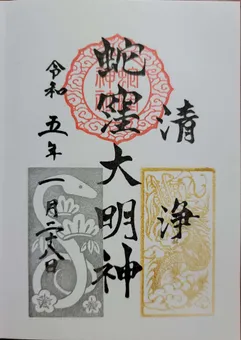 清浄
蛇窪大明神
令和五年一月二八日